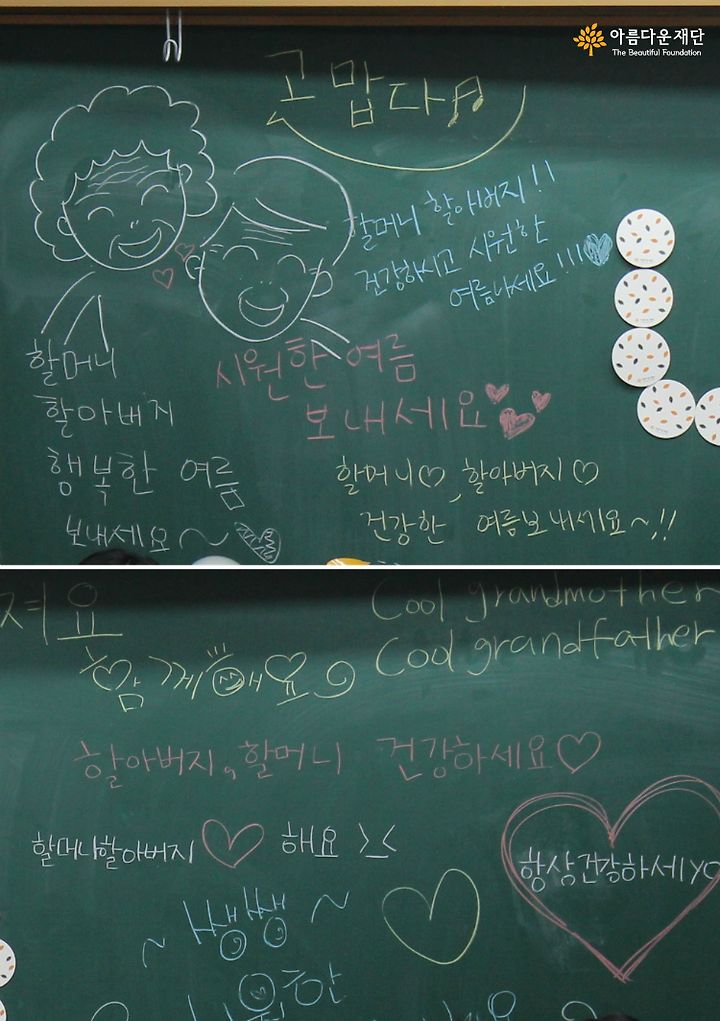 아름다운재단
The Beautiful Foundation
고맙다
할머니 할아버지!!
건강하시고 시원한
여름나세요!!!
할머니
할아버지
행복한 여름
보내세요~
시원한 여름
보내세요
할머니♡, 할아버지♡
건강한 여름보내세요~!!
계요
Cool grandmother
Cool grandfather
함께해요
할아버지, 할머니 건강하세요♡
할머니할아버지♡해요 >_<
항상건강하세yo
~쌩쌩~
시원한